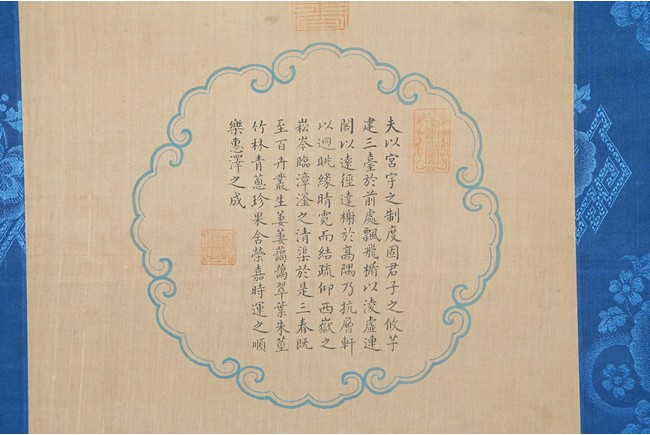 夫以宮宇之制度固君子之攸芋
建三臺於前處飄飛楯以淩虛連
閣以遠徑達榭於高隅乃抗層軒
以迥眺緣晴霓而結疏仰西嶽之
崧岑臨漳滏之清渠於是三春既
至百卉叢生萋萋藹藹翠葉朱莖
竹林青蔥珍果含榮嘉時運之順
樂惠澤之成